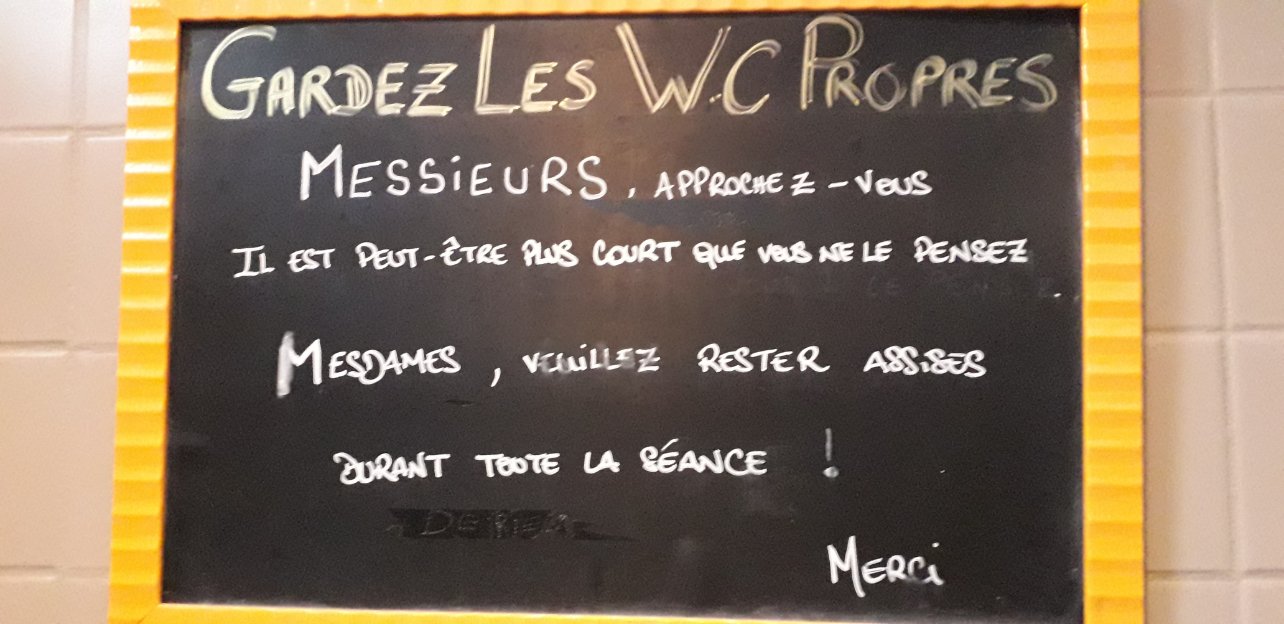 GARDEZ LES W.C PROPRES
MESSiEURS, APPROCHEZ-VOUS
IL EST PEUT-ÊTRE PLUS COURT QUE VOUS NE LE PENSEZ
MESDAMES, VEUILLEZ RESTER ASSiSES
DURANT TOUTE LA SÉANCE !
MERCi